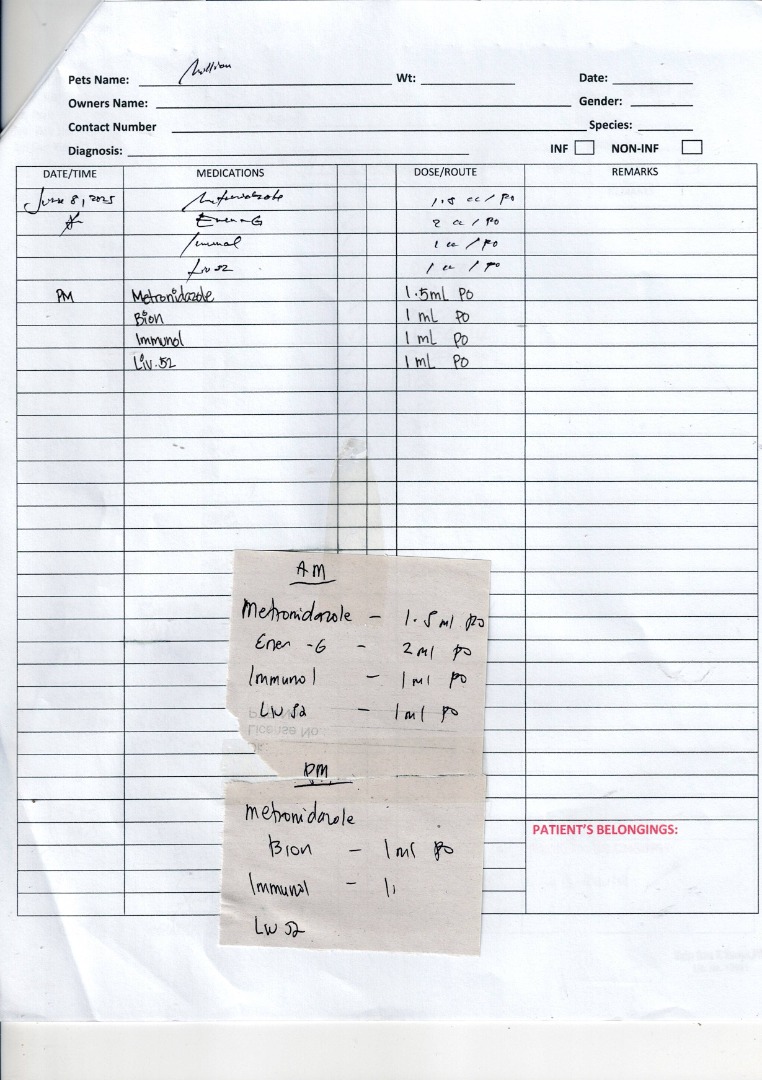 Pets Name: Million Wt: Date:
Owners Name: Gender:
Contact Number Species:
Diagnosis: INF NON-INF
DATE/TIME MEDICATIONS DOSE/ROUTE REMARKS
June 8, 2025 Metronidazole 1.5 cc / PO
Ener-G 2 cc / PO
Immunol 1 cc / PO
Liv 52 1 cc / PO
PM Metronidazole 1.5mL PO
Bion 1 mL PO
Immunol 1 mL PO
Liv.52 1 mL PO
AM
Metronidazole - 1.5 ml po
Ener -G - 2 ml po
Immunol - 1 ml po
Liv 52 - 1 ml po
License No.
PM
Metronidazole
Bion - 1 ml po
Immunol - 1
Liv 52
PATIENT'S BELONGINGS: